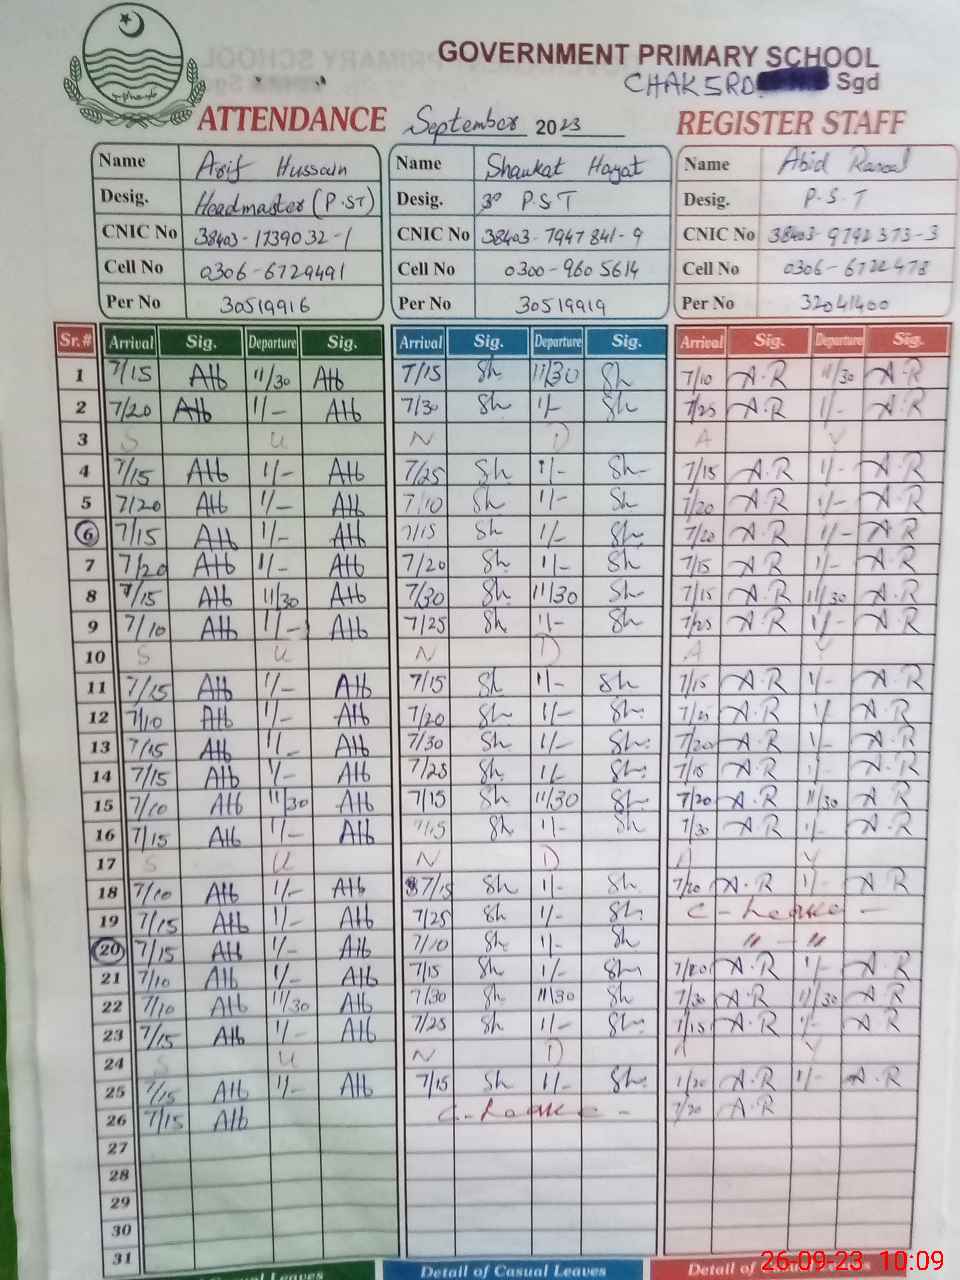 GOVERNMENT PRIMARY SCHOOL
CHAK 5RD Sgd
ATTENDANCE September 2023 REGISTER STAFF
Name Arif Hussain Name Shaukat Hayat Name Abid Rasool
Desig. Headmaster (P.ST) Desig. P.S.T Desig. P.S.T
CNIC No 38403-1739032-1 CNIC No 38403-7947841-9 CNIC No 38403-9792373-3
Cell No 0306-6729491 Cell No 0300-9605614 Cell No 0306-6722478
Per No 30519916 Per No 30519919 Per No 32041400
Sr.# Arrival Sig. Departure Sig. Arrival Sig. Departure Sig. Arrival Sig. Departure Sig.
1 7/15 AH 11/30 AH 7/15 Sh 11/30 Sh 7/10 A.R 11/30 A.R
2 7/20 AH 1/- AH 7/30 Sh 1/- Sh 7/25 A.R 1/- A.R
3 S U N D A Y
4 7/15 AH 1/- AH 7/25 Sh 1/- Sh 7/15 A.R 1/- A.R
5 7/20 AH 1/- AH 7/10 Sh 1/- Sh 7/20 A.R 1/- A.R
6 7/15 AH 1/- AH 7/15 Sh 1/- Sh. 7/20 A.R 1/- A.R
7 7/20 AH 1/- AH 7/20 Sh. 1/- Sh 7/15 A.R 1/- A.R
8 7/15 AH 11/30 AH 7/30 Sh. 11/30 Sh 7/15 A.R 11/30 A.R
9 7/10 AH 1/- AH 7/25 Sh 1/- Sh 7/25 A.R 1/- A.R
10 S U N D A Y
11 7/15 AH 1/- AH 7/15 Sh 1/- Sh 7/15 A.R 1/- A.R
12 7/10 AH 1/- AH 7/20 Sh 1/- Sh. 7/25 A.R 1/- A.R
13 7/15 AH 1/- AH 7/30 Sh 1/- Sh. 7/20 A.R 1/- A.R
14 7/15 AH 1/- AH 7/25 Sh. 1/- Sh. 7/15 A.R 1/- A.R
15 7/10 AH 11/30 AH 7/15 Sh 11/30 Sh. 7/20 A.R 11/30 A.R
16 7/15 AH 1/- AH 7/15 Sh 1/- Sh 7/30 A.R 1/- A.R
17 S U N D A Y
18 7/10 AH 1/- AH 7/15 Sh 1/- Sh. 7/20 A.R 1/- A.R
19 7/15 AH 1/- AH 7/25 Sh 1/- Sh. C-Leave -
20 7/15 AH 1/- AH 7/10 Sh. 1/- Sh " - "
21 7/10 AH 1/- AH 7/15 Sh 1/- Sh 7/20 A.R 1/- A.R
22 7/10 AH 11/30 AH 7/30 Sh. 11/30 Sh 7/30 A.R 11/30 A.R
23 7/15 AH 1/- AH 7/25 Sh 1/- Sh. 7/15 A.R 1/- A.R
24 S U N D A Y
25 7/15 AH 1/- AH 7/15 Sh 1/- Sh. 7/20 A.R 1/- A.R
26 7/15 AH C-Leave - 7/20 A.R
27
28
29
30
31
Casual Leaves Detail of Casual Leaves Detail of
26-09-23 10:09